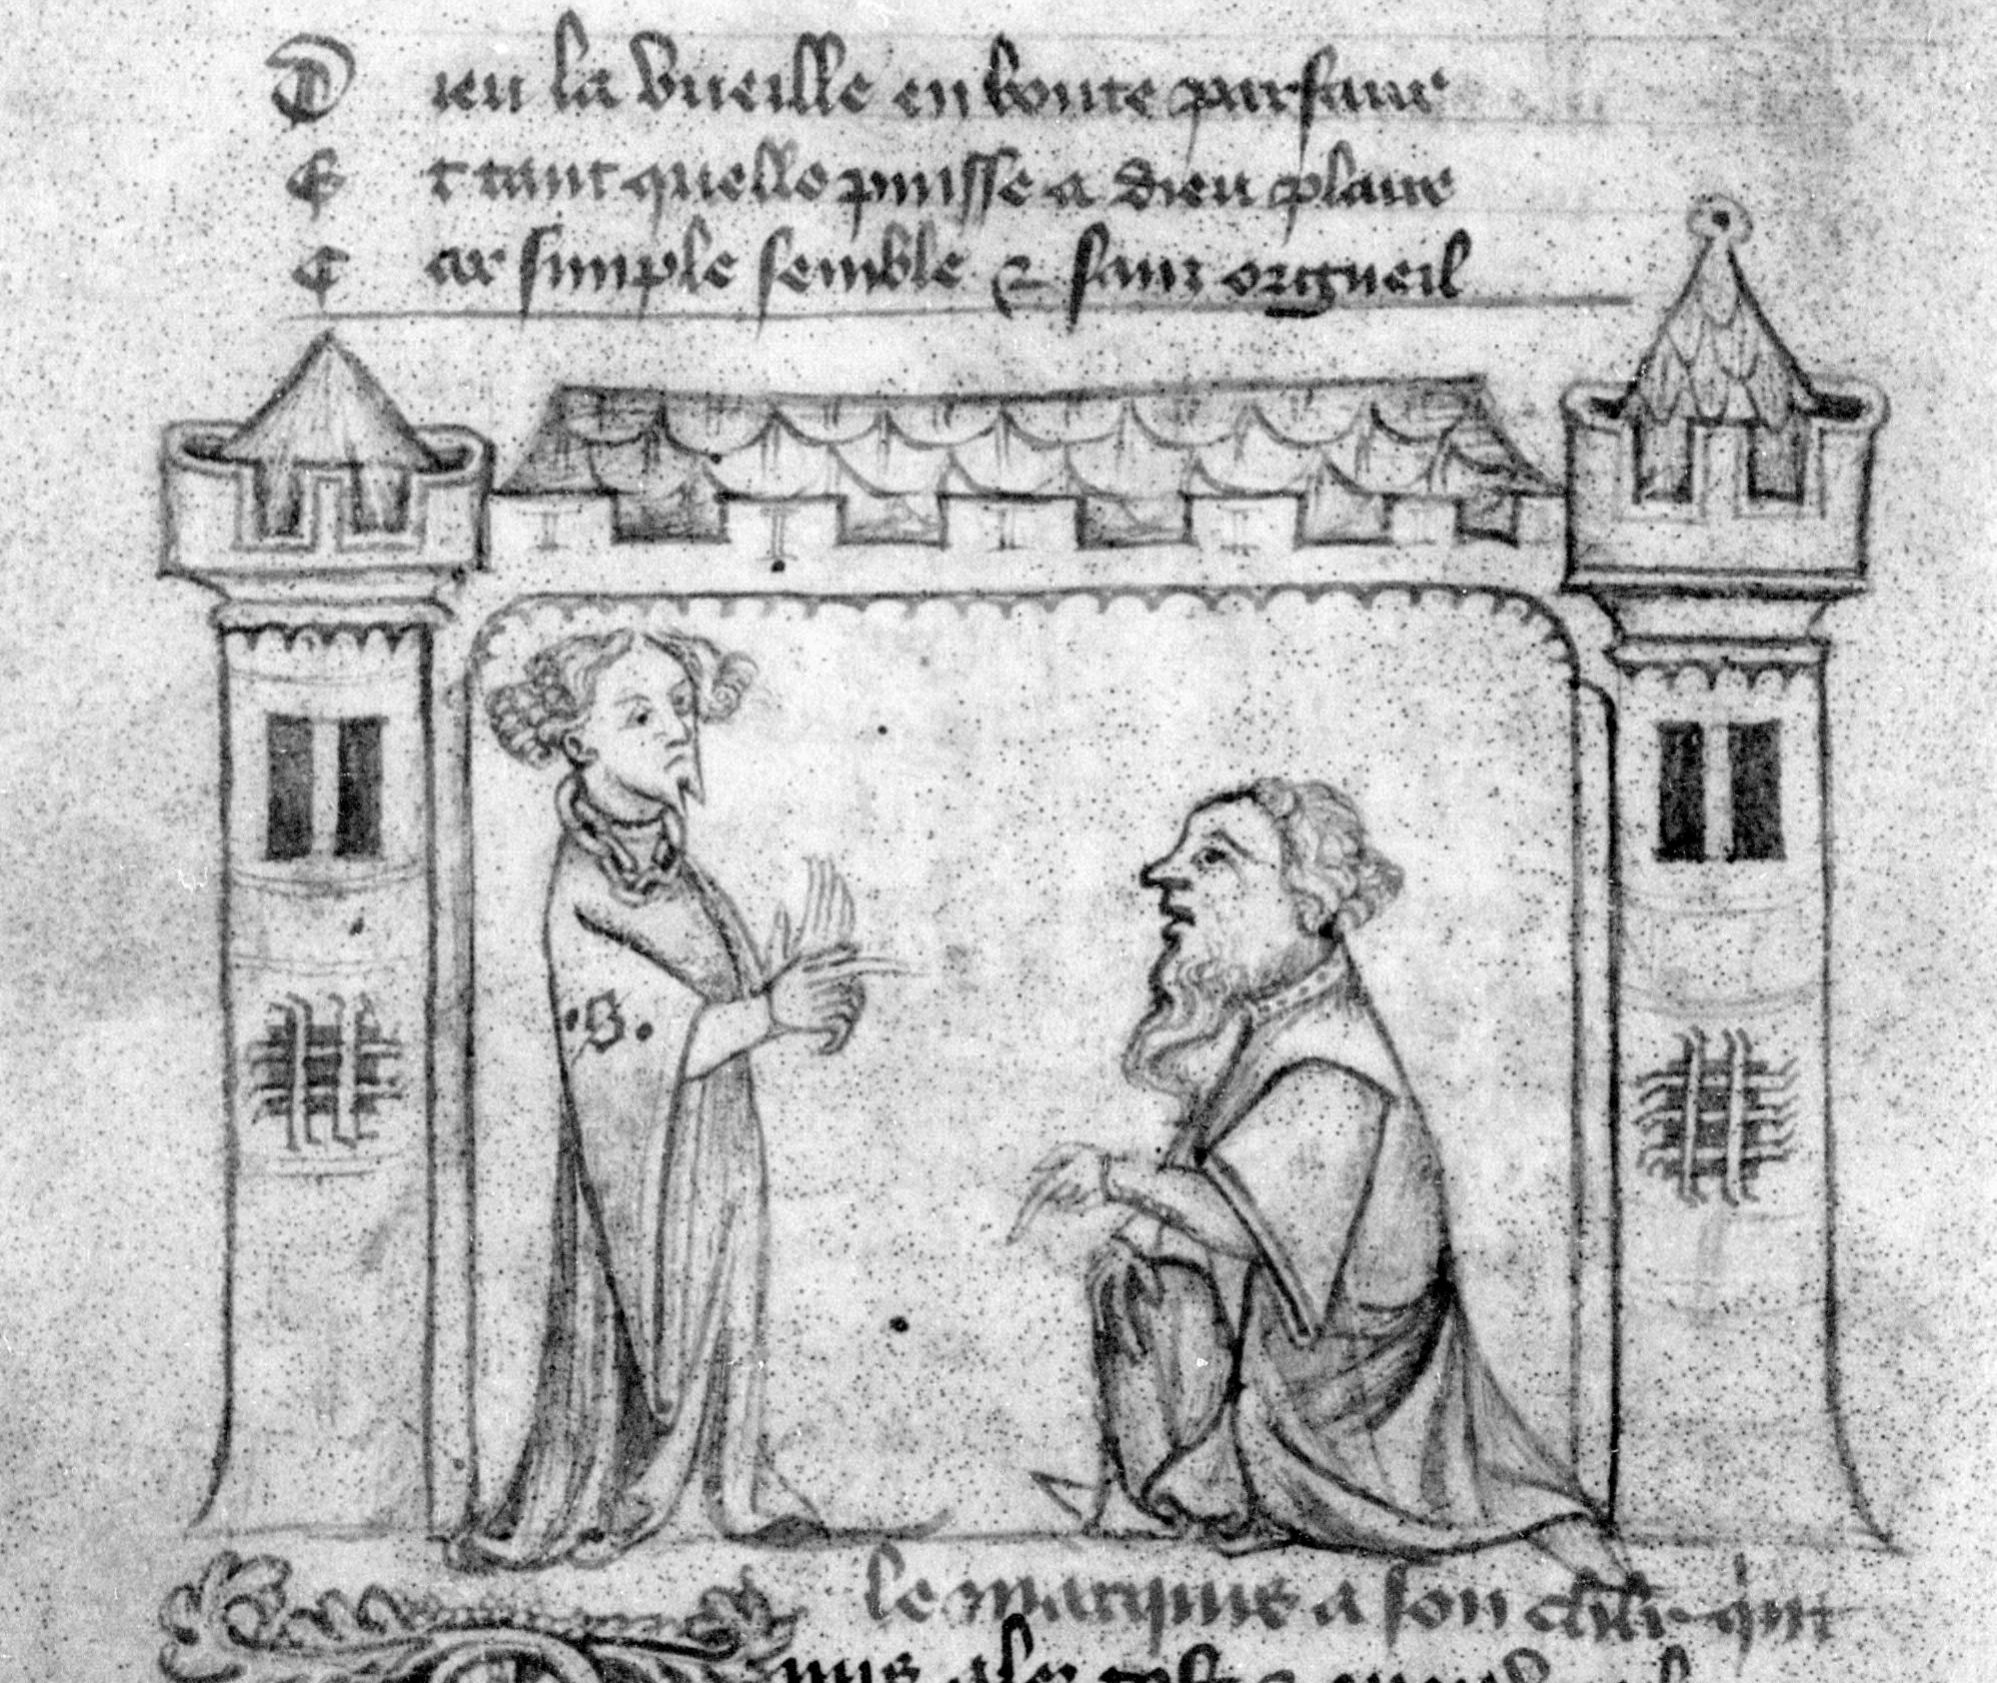 Dieu la vueille en bonte parfaire
Et tant quelle puisse a dieu plaire
Car simple semble & sanz orgueil
.S.
le marquis a son chlr qui